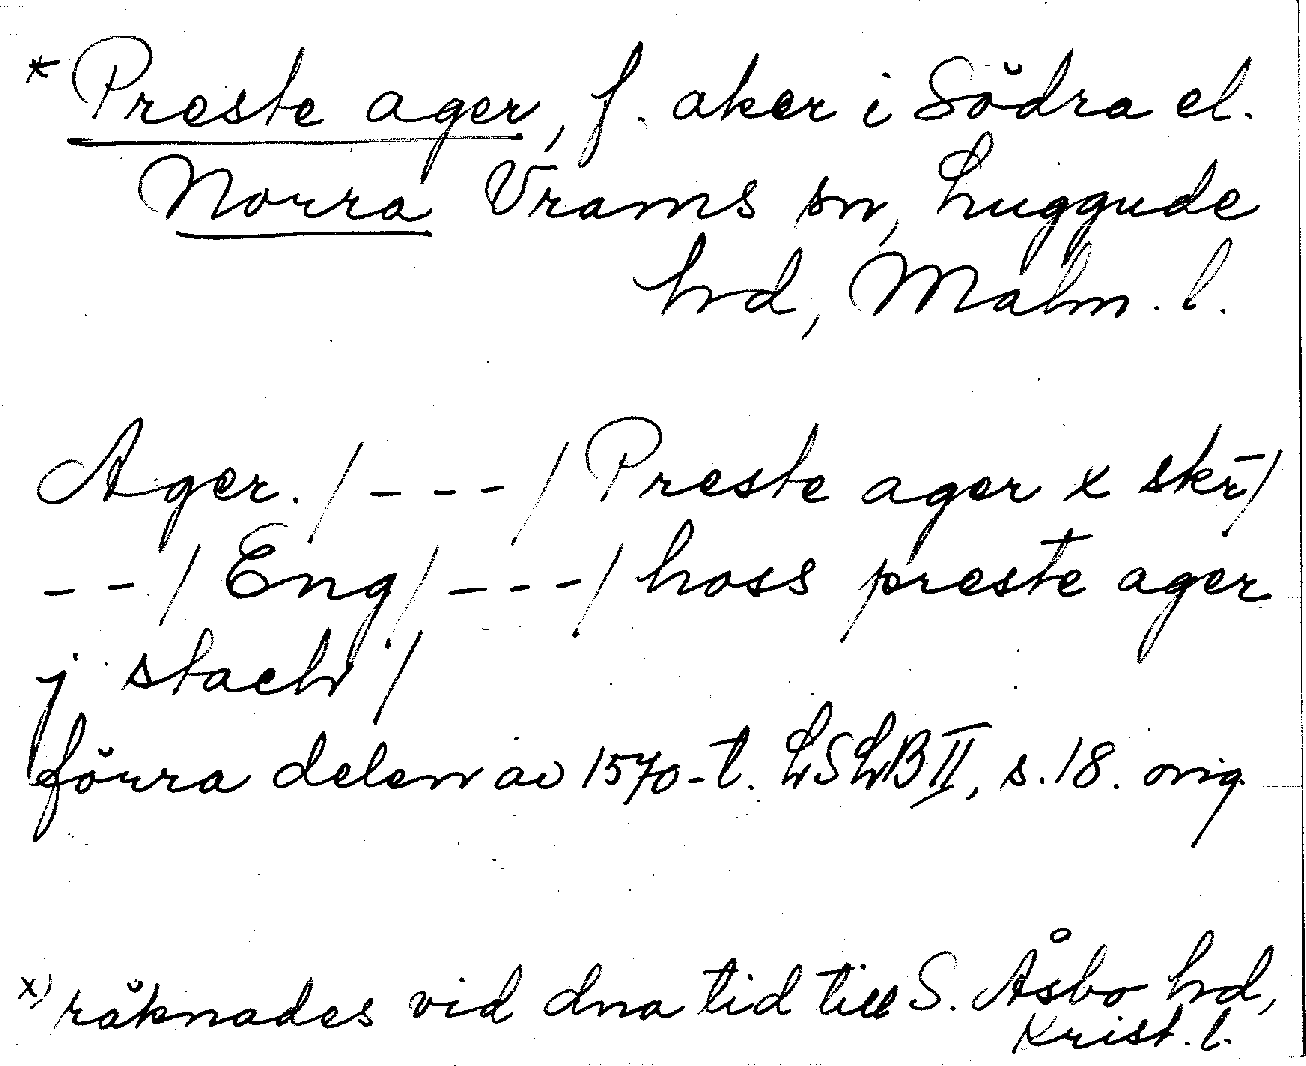 * Preste ager, f. aker i Södra el.
Norra Vrams sn, Luggude
hrd, Malm. l.
Ager. /---/ Preste ager x skr̄/
--/ Eng/---/ hoss preste ager
j stach /
förra delen av 1570-t. LSLB II, s. 18. orig
x) räknades vid dna tid till S. Åsbo hrd,
Krist. l.